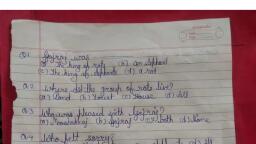 Q1 Gajraj was
a) The king of rats (b) an elephant
(c) The king of elephants (d) a rat
Q.2 Where did the group of rats live?
(a) Land (b) Forest (c) House (d) All
Q.3 Who was pleased with Gajraj?
(a) (b) Gajraj (c) both (d) None
Q.4 Who felt sorry?